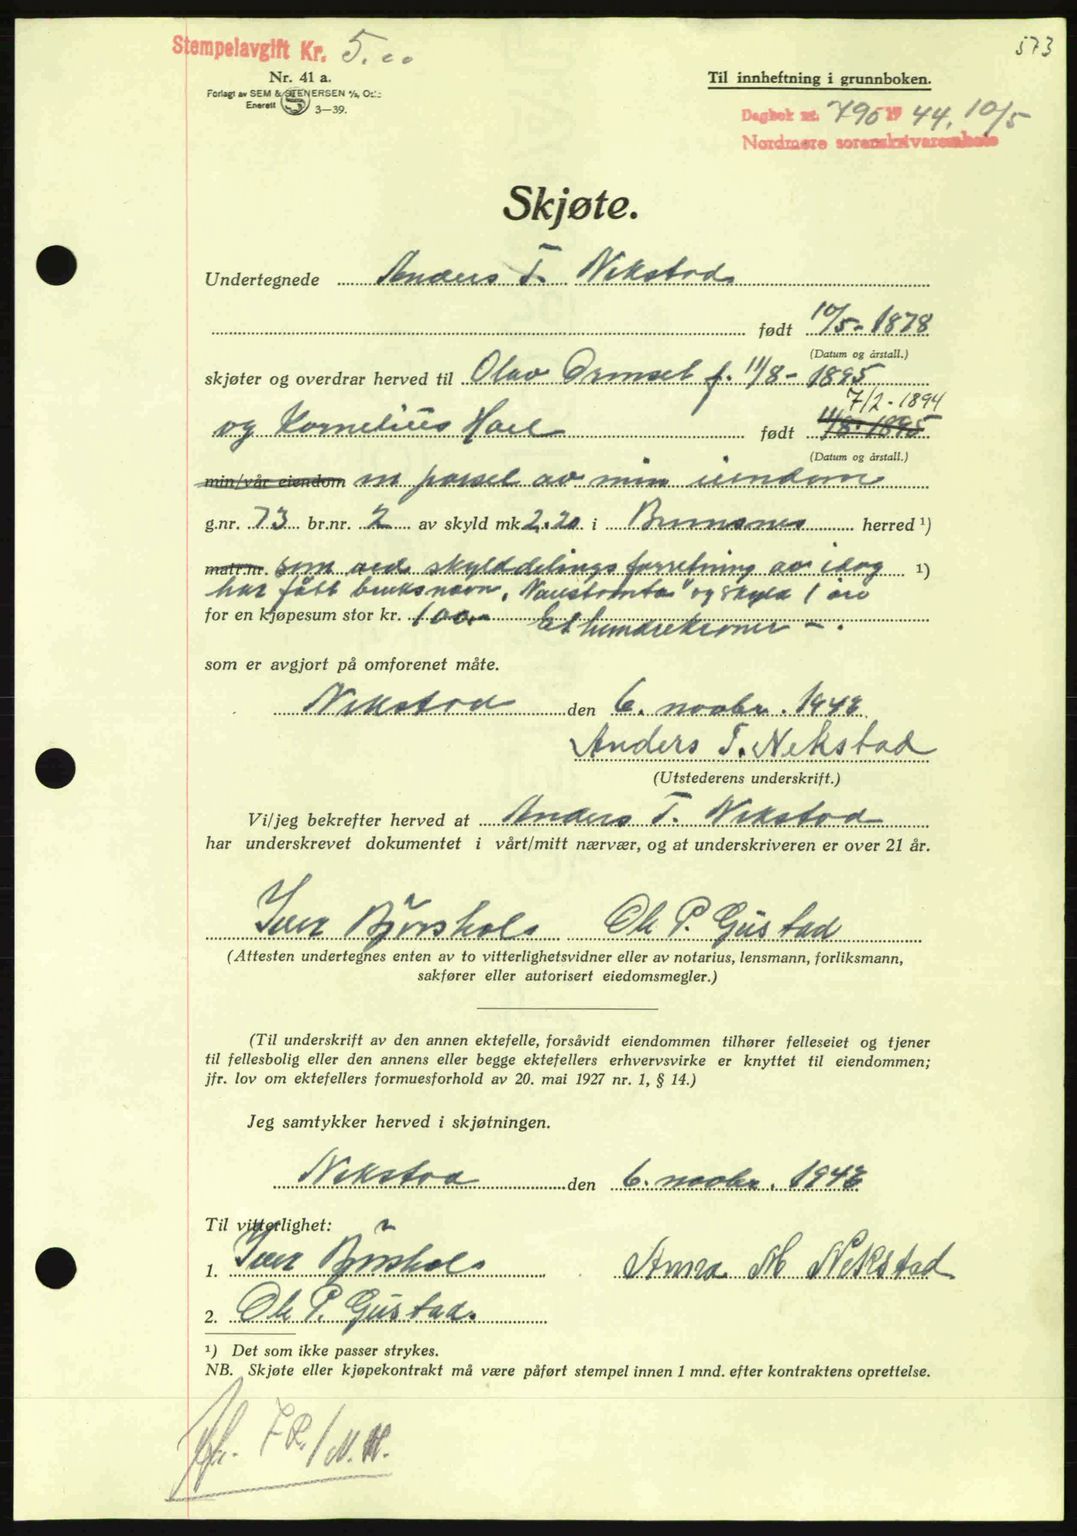 573
Stempelavgift Kr. 5.00
Nr. 41 a.
Forlagt av SEM & STENERSEN A/S, Oslo
Enerett S 3—39.
Til innheftning i grunnboken.
Dagbok nr. 790 19 44. 10/5
Nordmøre sorenskrivarembete
Skjøte.
Undertegnede Anders T. Nekstad
født 10/5-1878
(Datum og årstall.)
skjøter og overdrar herved til Olav Ormset f. 11/8 - 1895
7/2 - 1894
og Kornelius Hael født 11/8-1895
(Datum og årstall.)
min/vår eiendom en parsel av min eiendom
g.nr. 73 br.nr. 2 av skyld mk 2.20 i Bremsnes herred ¹)
matr.nr. som ved skylddelingsforretning av idag ¹)
har fått bruksnavn „Naustomta" og skyld 1 øre
for en kjøpesum stor kr. 100.- Et hundrekroner -.
som er avgjort på omforenet måte.
Nekstad den 6. novbr. 1943
Anders T. Nekstad
(Utstederens underskrift.)
Vi/jeg bekrefter herved at Anders T. Nekstad
har underskrevet dokumentet i vårt/mitt nærvær, og at underskriveren er over 21 år.
Iver Bjørshol Ole P. Gustad
(Attesten undertegnes enten av to vitterlighetsvidner eller av notarius, lensmann, forliksmann,
sakfører eller autorisert eiedomsmegler.)
(Til underskrift av den annen ektefelle, forsåvidt eiendommen tilhører felleseiet og tjener
til fellesbolig eller den annens eller begge ektefellers erhvervsvirke er knyttet til eiendommen;
jfr. lov om ektefellers formuesforhold av 20. mai 1927 nr. 1, § 14.)
Jeg samtykker herved i skjøtningen.
Nekstad den 6. novbr. 1943
Til vitterlighet:
1. Iver Bjørshol Anna M Nekstad
2. Ole P. Gustad.
¹) Det som ikke passer strykes.
NB. Skjøte eller kjøpekontrakt må være påført stempel innen 1 mnd. efter kontraktens oprettelse.